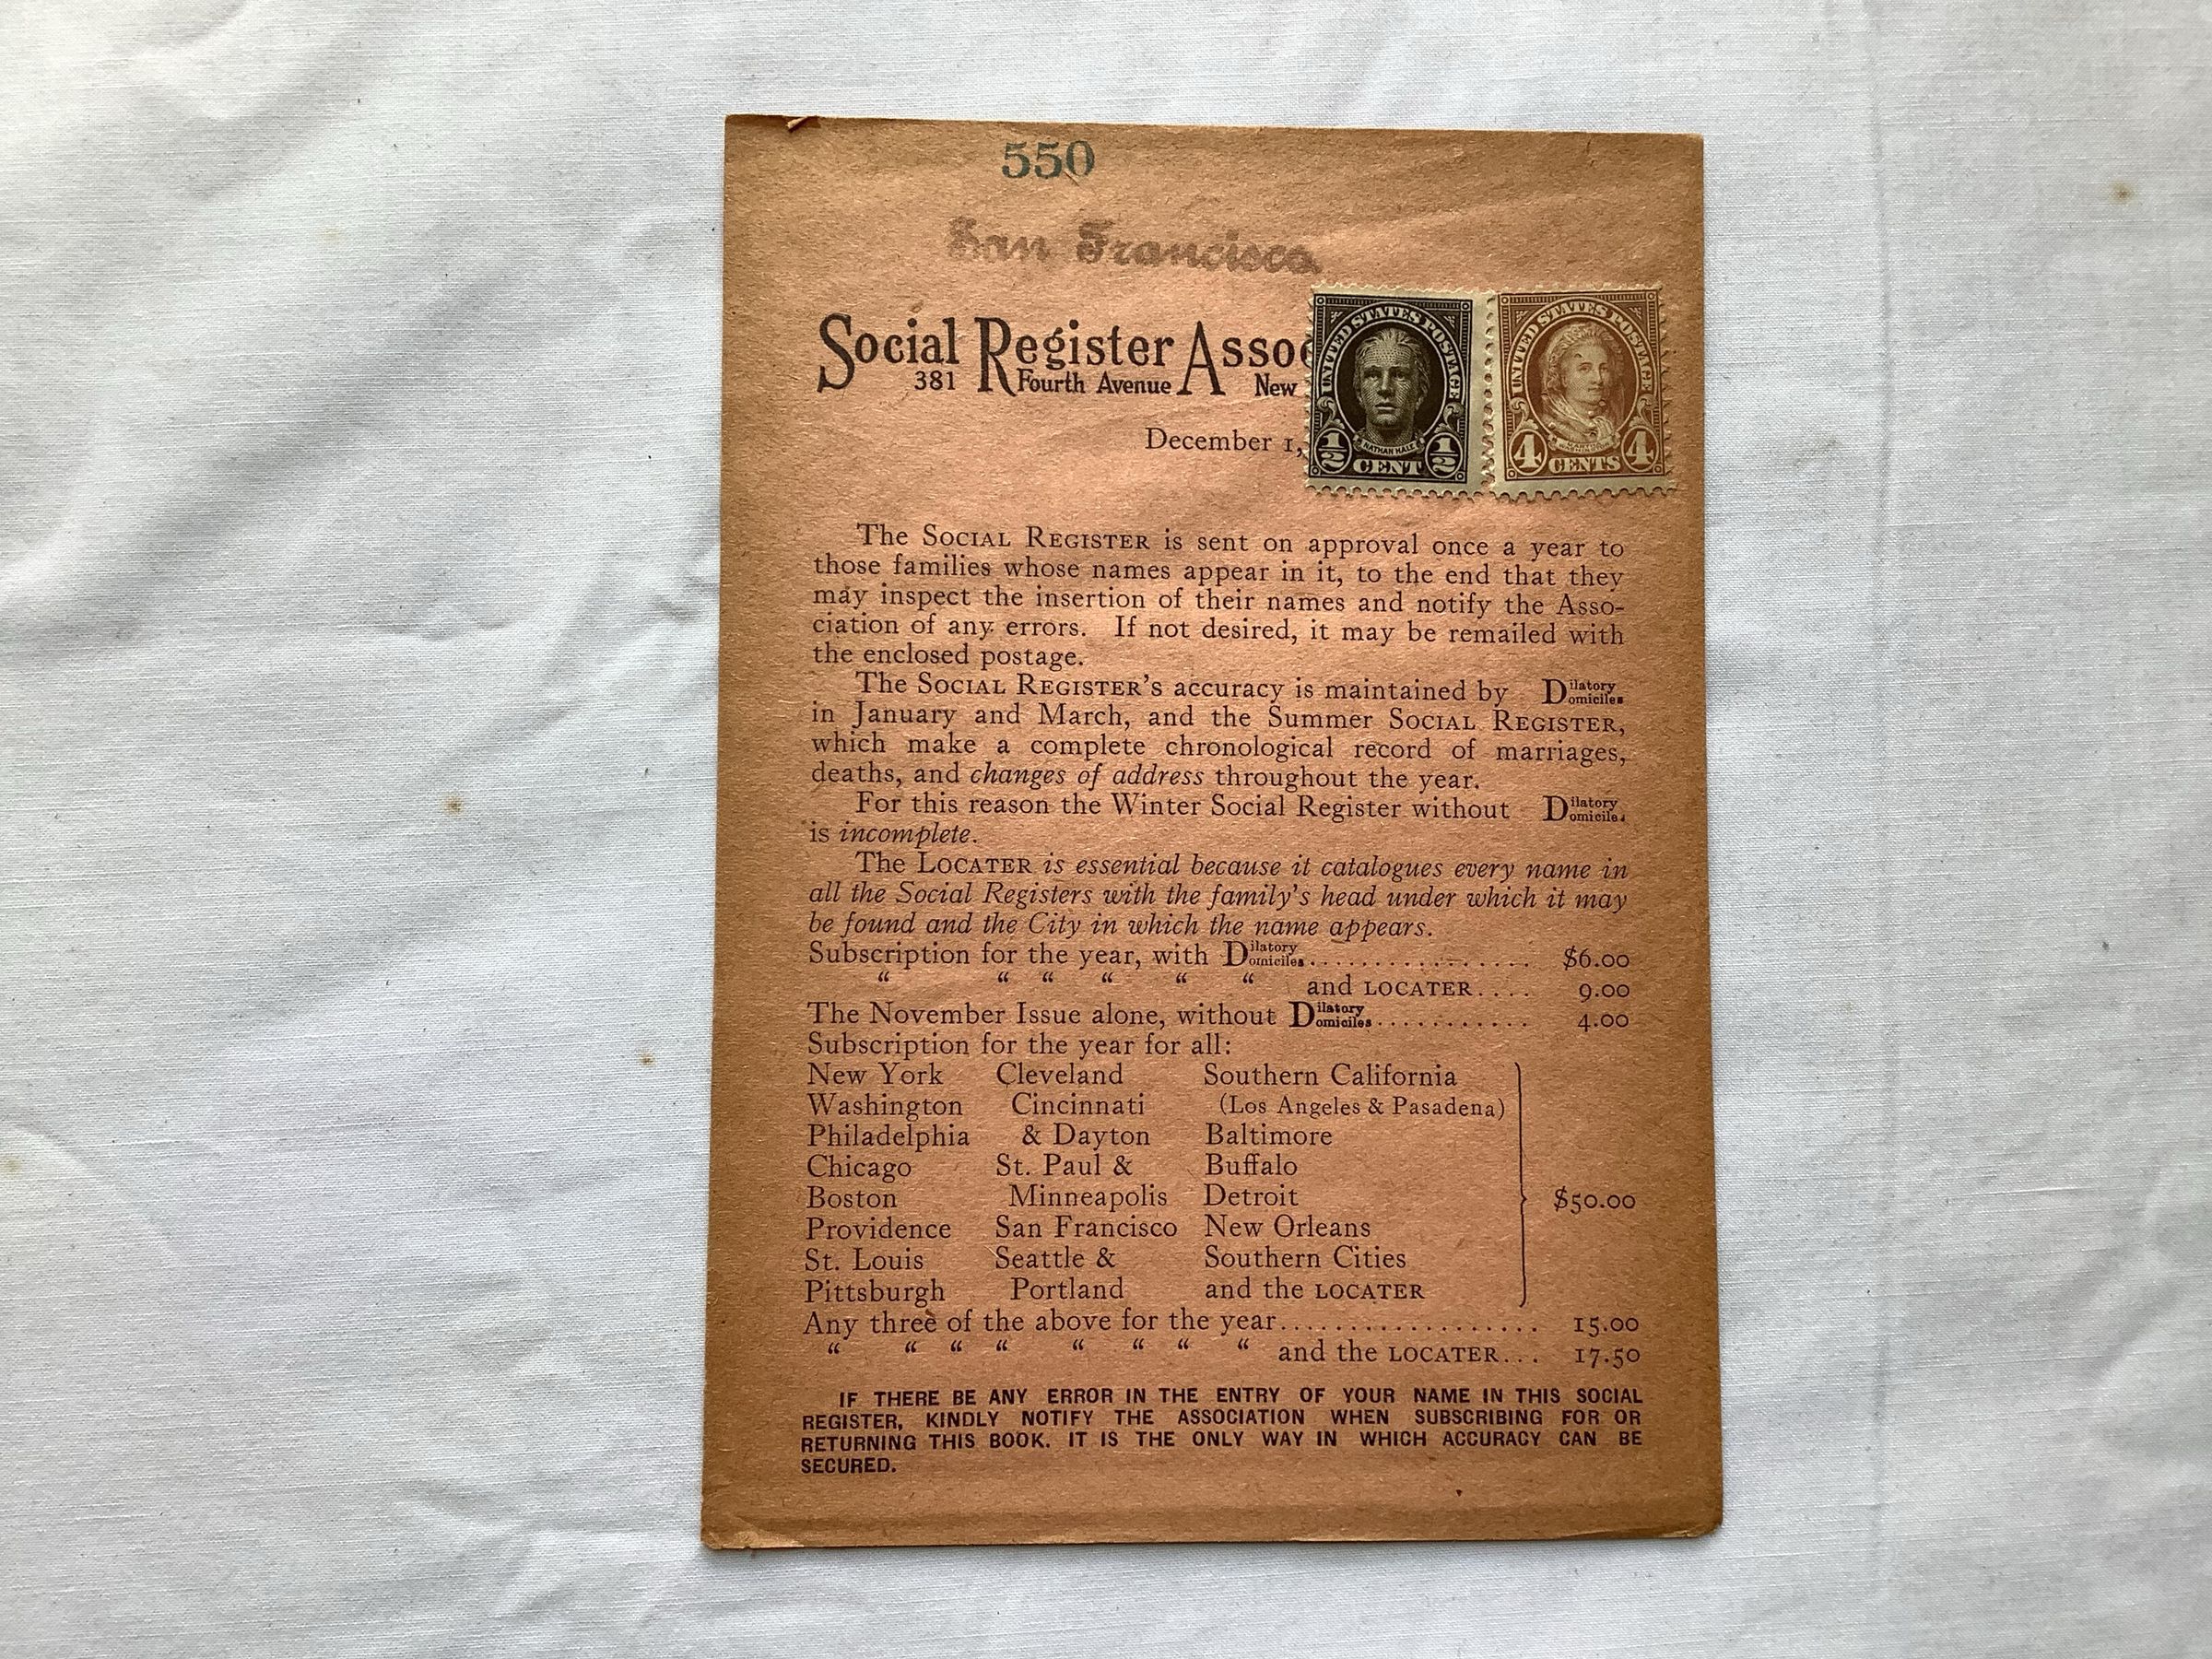 550
San Francisco
Social Register Asso
381 Fourth Avenue New
December 1,
UNITED STATES POSTAGE
NATHAN HALE
1/2 CENT 1/2
UNITED STATES POSTAGE
4 CENTS 4
The SOCIAL REGISTER is sent on approval once a year to
those families whose names appear in it, to the end that they
may inspect the insertion of their names and notify the Asso-
ciation of any errors. If not desired, it may be remailed with
the enclosed postage.
The SOCIAL REGISTER'S accuracy is maintained by Dilatory Domiciles
in January and March, and the Summer SOCIAL REGISTER,
which make a complete chronological record of marriages,
deaths, and changes of address throughout the year.
For this reason the Winter Social Register without Dilatory Domicile.
is incomplete.
The LOCATER is essential because it catalogues every name in
all the Social Registers with the family's head under which it may
be found and the City in which the name appears.
Subscription for the year, with Dilatory Domiciles................ $6.00
“ “ “ “ “ “ and LOCATER.... 9.00
The November Issue alone, without Dilatory Domiciles........... 4.00
Subscription for the year for all:
New York Cleveland Southern California
Washington Cincinnati (Los Angeles & Pasadena)
Philadelphia & Dayton Baltimore
Chicago St. Paul & Buffalo
Boston Minneapolis Detroit $50.00
Providence San Francisco New Orleans
St. Louis Seattle & Southern Cities
Pittsburgh Portland and the LOCATER
Any three of the above for the year.................. 15.00
“ “ “ “ “ “ “ “ and the LOCATER... 17.50
IF THERE BE ANY ERROR IN THE ENTRY OF YOUR NAME IN THIS SOCIAL
REGISTER, KINDLY NOTIFY THE ASSOCIATION WHEN SUBSCRIBING FOR OR
RETURNING THIS BOOK. IT IS THE ONLY WAY IN WHICH ACCURACY CAN BE
SECURED.